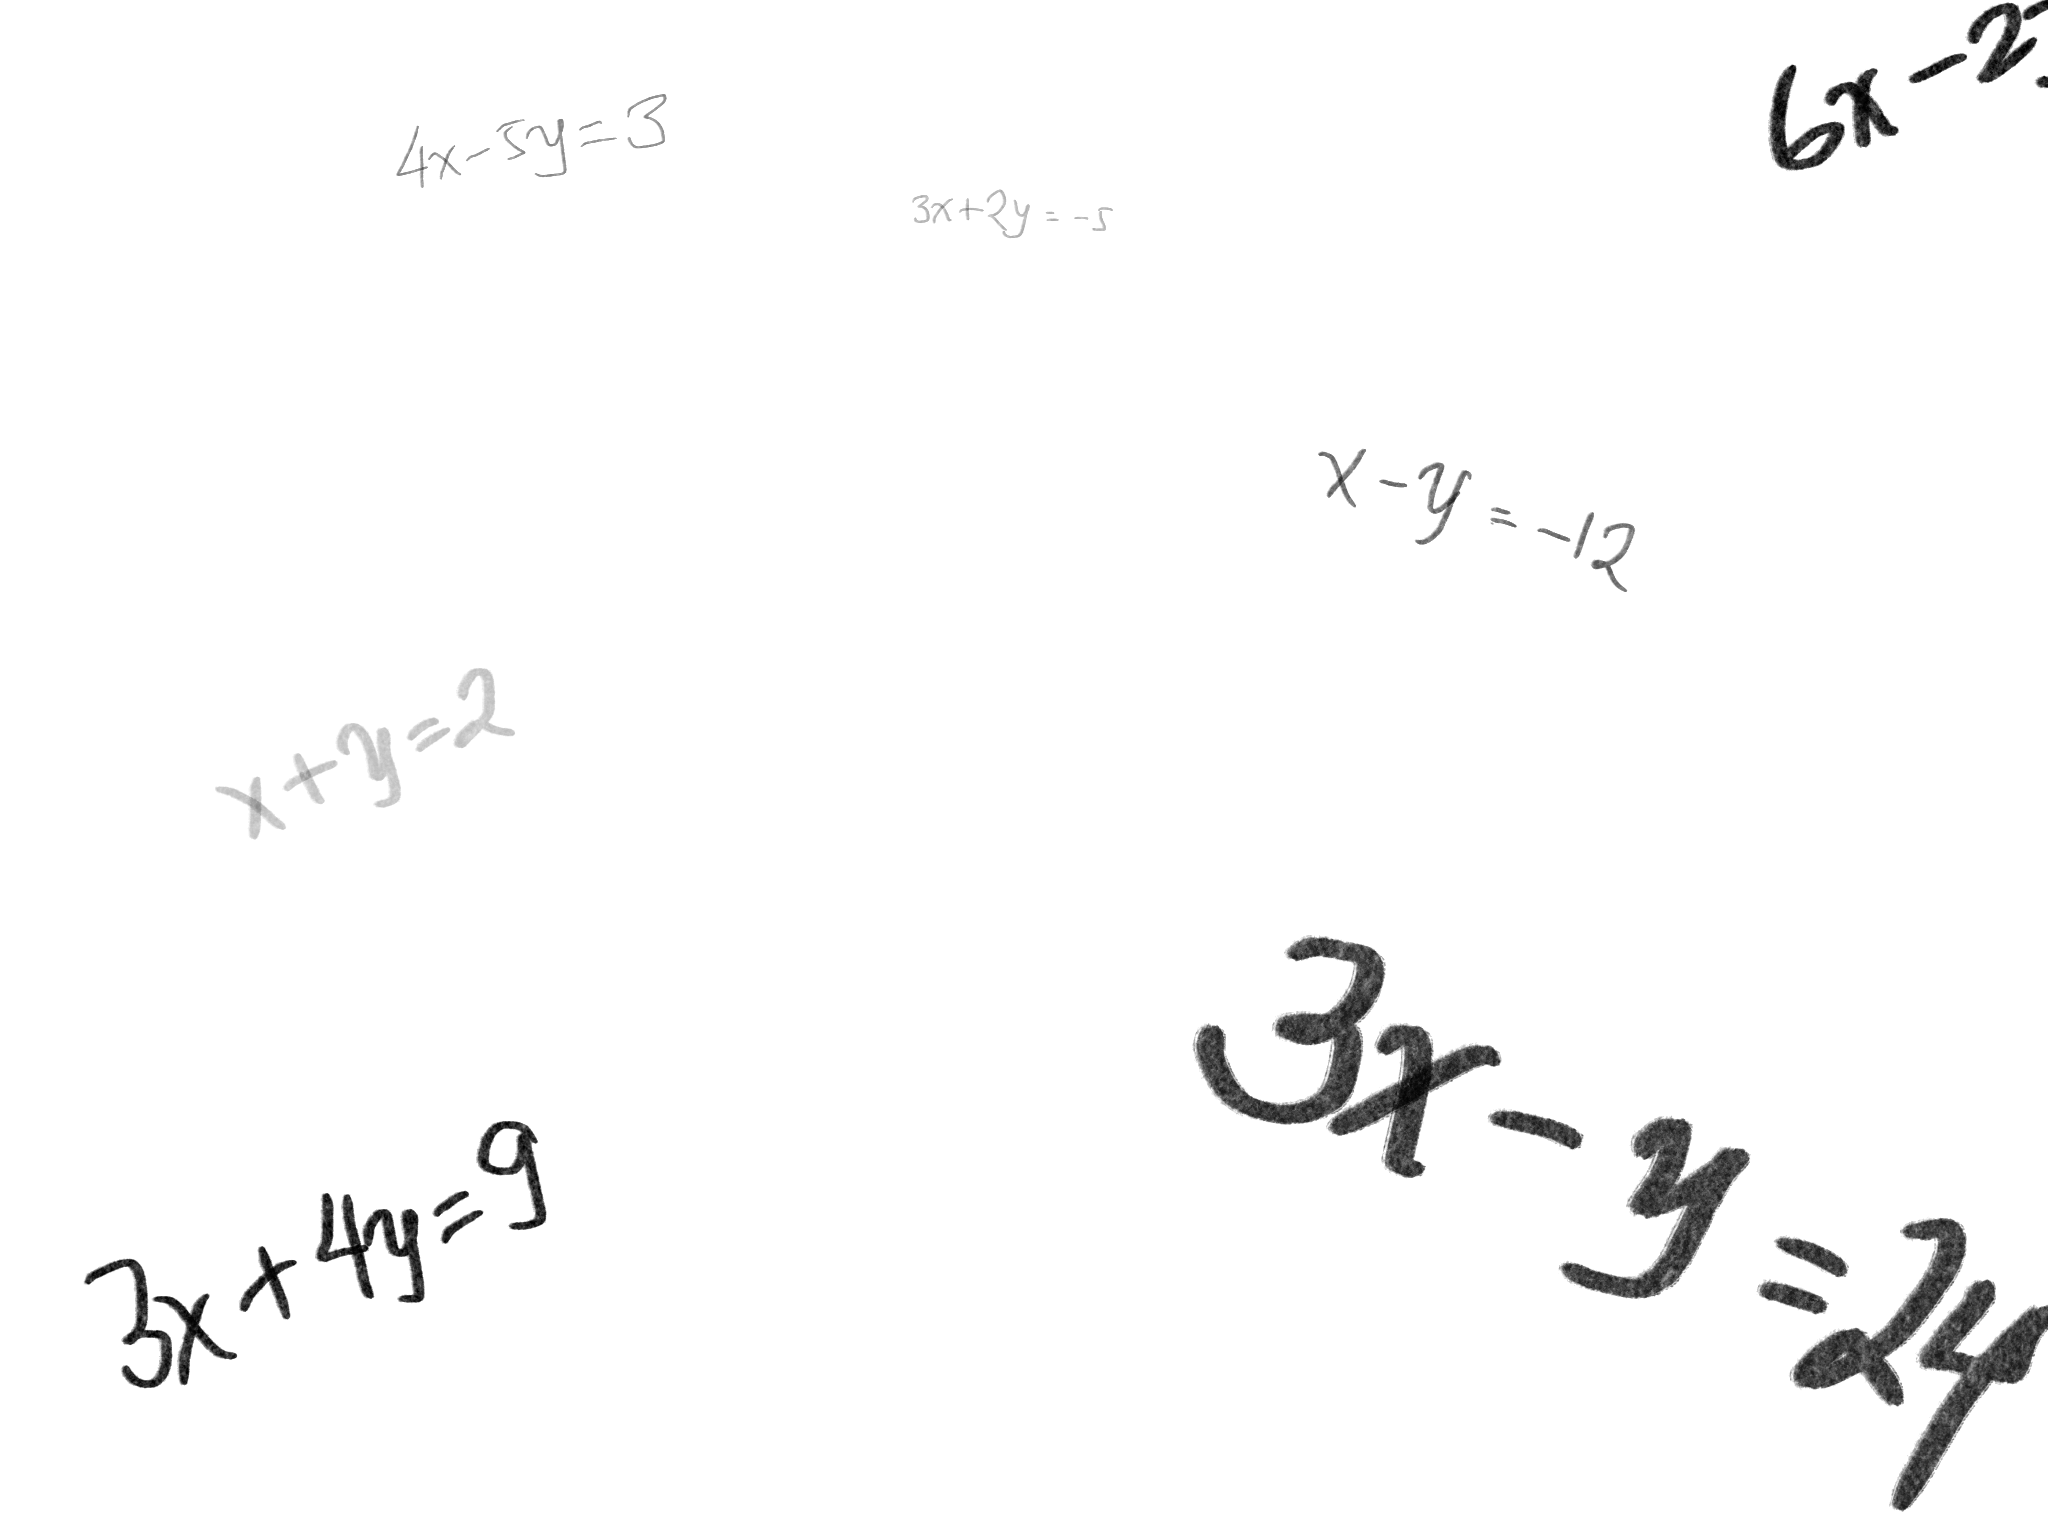 4x-5y=3
3x+2y=-5
6x-2
x-y=-12
x+y=2
3x-y=24
3x+4y=9